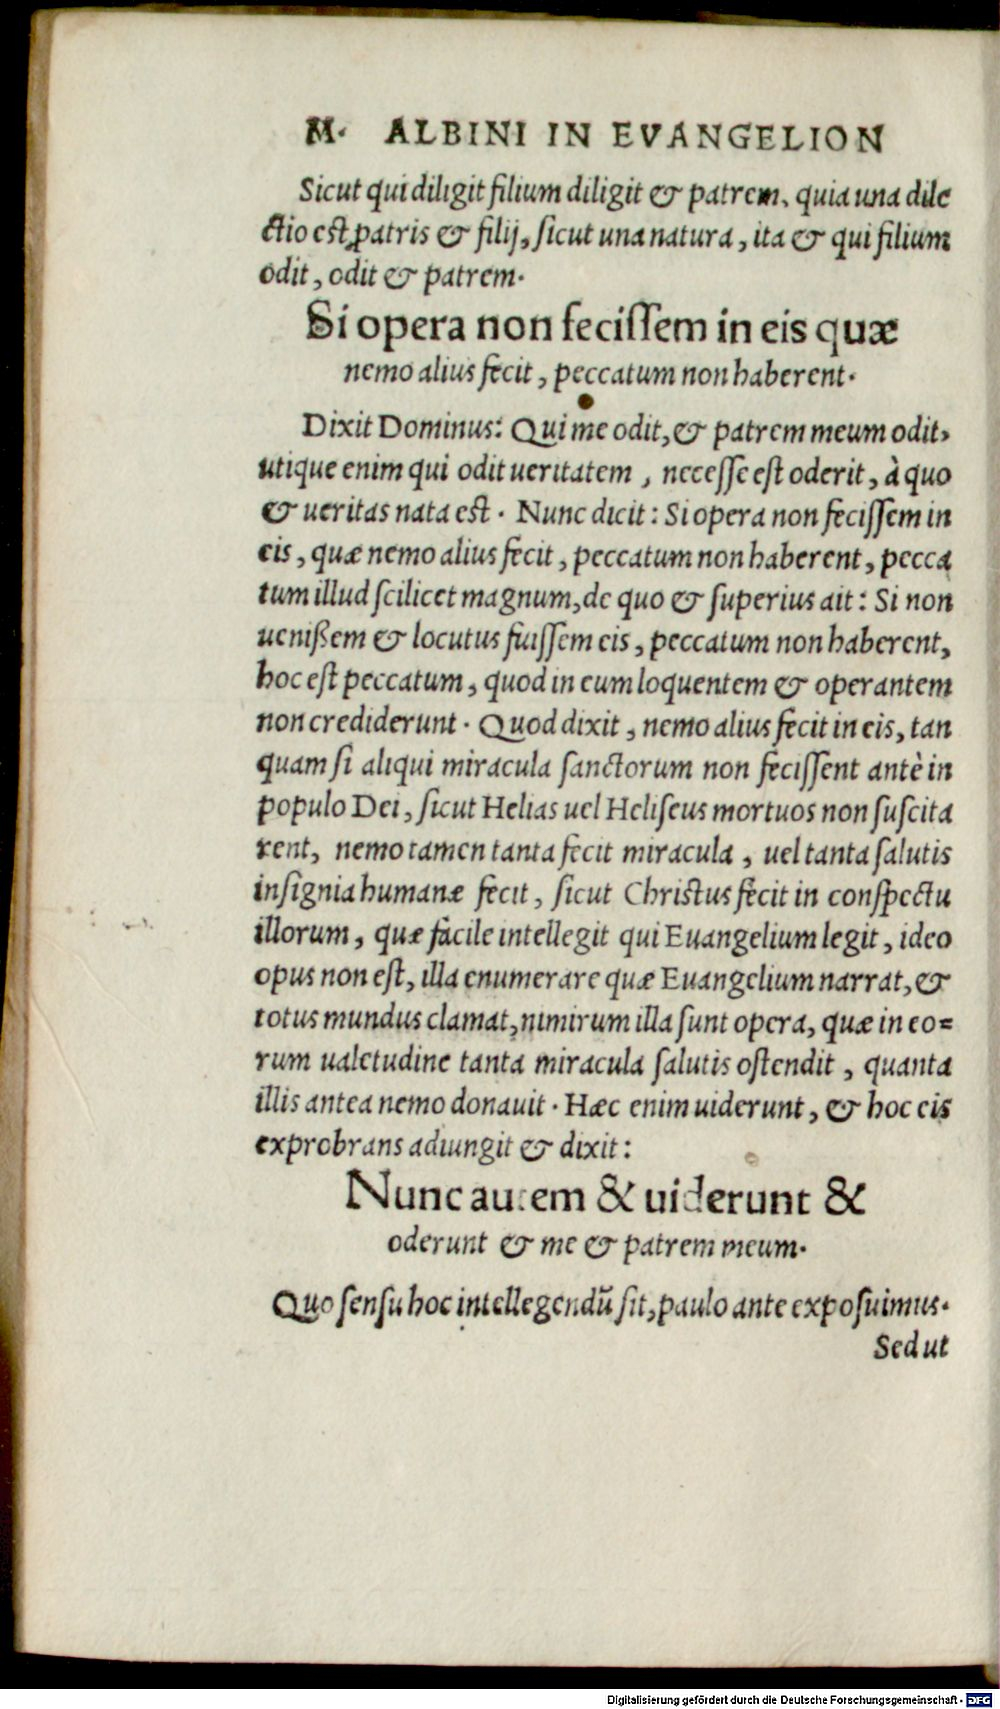 M. ALBINI IN EVANGELION
Sicut qui diligit filium diligit & patrem, quia una dile
ctio est patris & filij, sicut una natura, ita & qui filium
odit, odit & patrem.
Si opera non fecissem in eis quæ
nemo alius fecit, peccatum non haberent.
Dixit Dominus: Qui me odit, & patrem meum odit,
utique enim qui odit ueritatem, necesse est oderit, à quo
& ueritas nata est. Nunc dicit: Si opera non fecissem in
eis, quæ nemo alius fecit, peccatum non haberent, pecca
tum illud scilicet magnum, de quo & superius ait: Si non
uenißem & locutus fuissem eis, peccatum non haberent,
hoc est peccatum, quod in eum loquentem & operantem
non crediderunt. Quod dixit, nemo alius fecit in eis, tan
quam si aliqui miracula sanctorum non fecissent antè in
populo Dei, sicut Helias uel Heliseus mortuos non suscita
rent, nemo tamen tanta fecit miracula, uel tanta salutis
insignia humanæ fecit, sicut Christus fecit in conspectu
illorum, quæ facile intellegit qui Euangelium legit, ideo
opus non est, illa enumerare quæ Euangelium narrat, &
totus mundus clamat, nimirum illa sunt opera, quæ in eo=
rum ualetudine tanta miracula salutis ostendit, quanta
illis antea nemo donauit. Hæc enim uiderunt, & hoc eis
exprobrans adiungit & dixit:
Nunc autem & uiderunt &
oderunt & me & patrem meum.
Quo sensu hoc intellegendũ sit, paulo ante exposuimus.
Sed ut
Digitalisierung gefördert durch die Deutsche Forschungsgemeinschaft - DFG